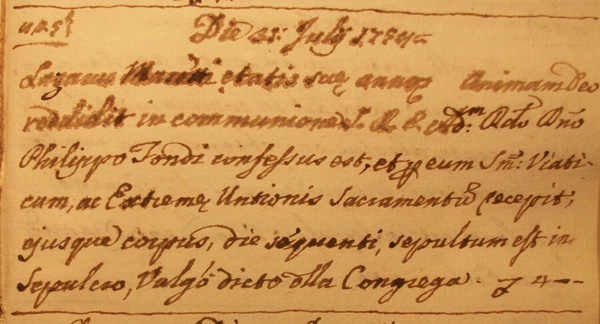 Die 21: July 1754
Lazarus etatis suę annoʒ Animam Deo
reddidit in communione S. R. E. ad.m Rdo Dno
Philippo Tondi confessus est, et p eum Sm: Viati-
cum, ac Extremę Untionis Sacramentũ recepit,
ejusque corpus, die sequenti, sepultum est in
Sepulcro, Vulgò dicto olla Congrega